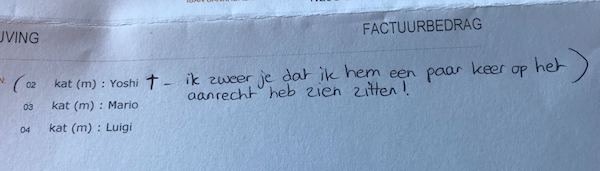 JVING
FACTUURBEDRAG
( 02 kat (m) : Yoshi † – ik zweer je dat ik hem een paar keer op het )
aanrecht heb zien zitten!
03 kat (m) : Mario
04 kat (m) : Luigi